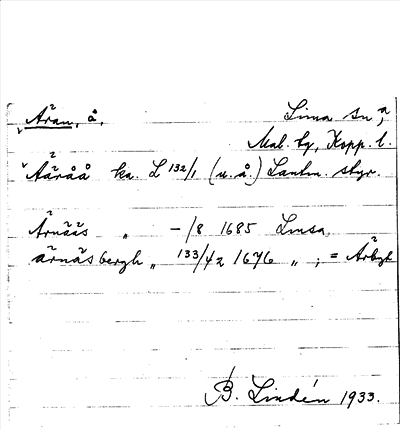 Åran, å,
Lima sn,
Mal. tg, Kopp. l.
Åäråå ka. L 132/1 (u. å.) Lantm. styr.
Årnääs " -/8 1685 Lmsa,
ärnäsbergh " 133/42 1676 " ; = Årbgt
B. Lindén 1933.